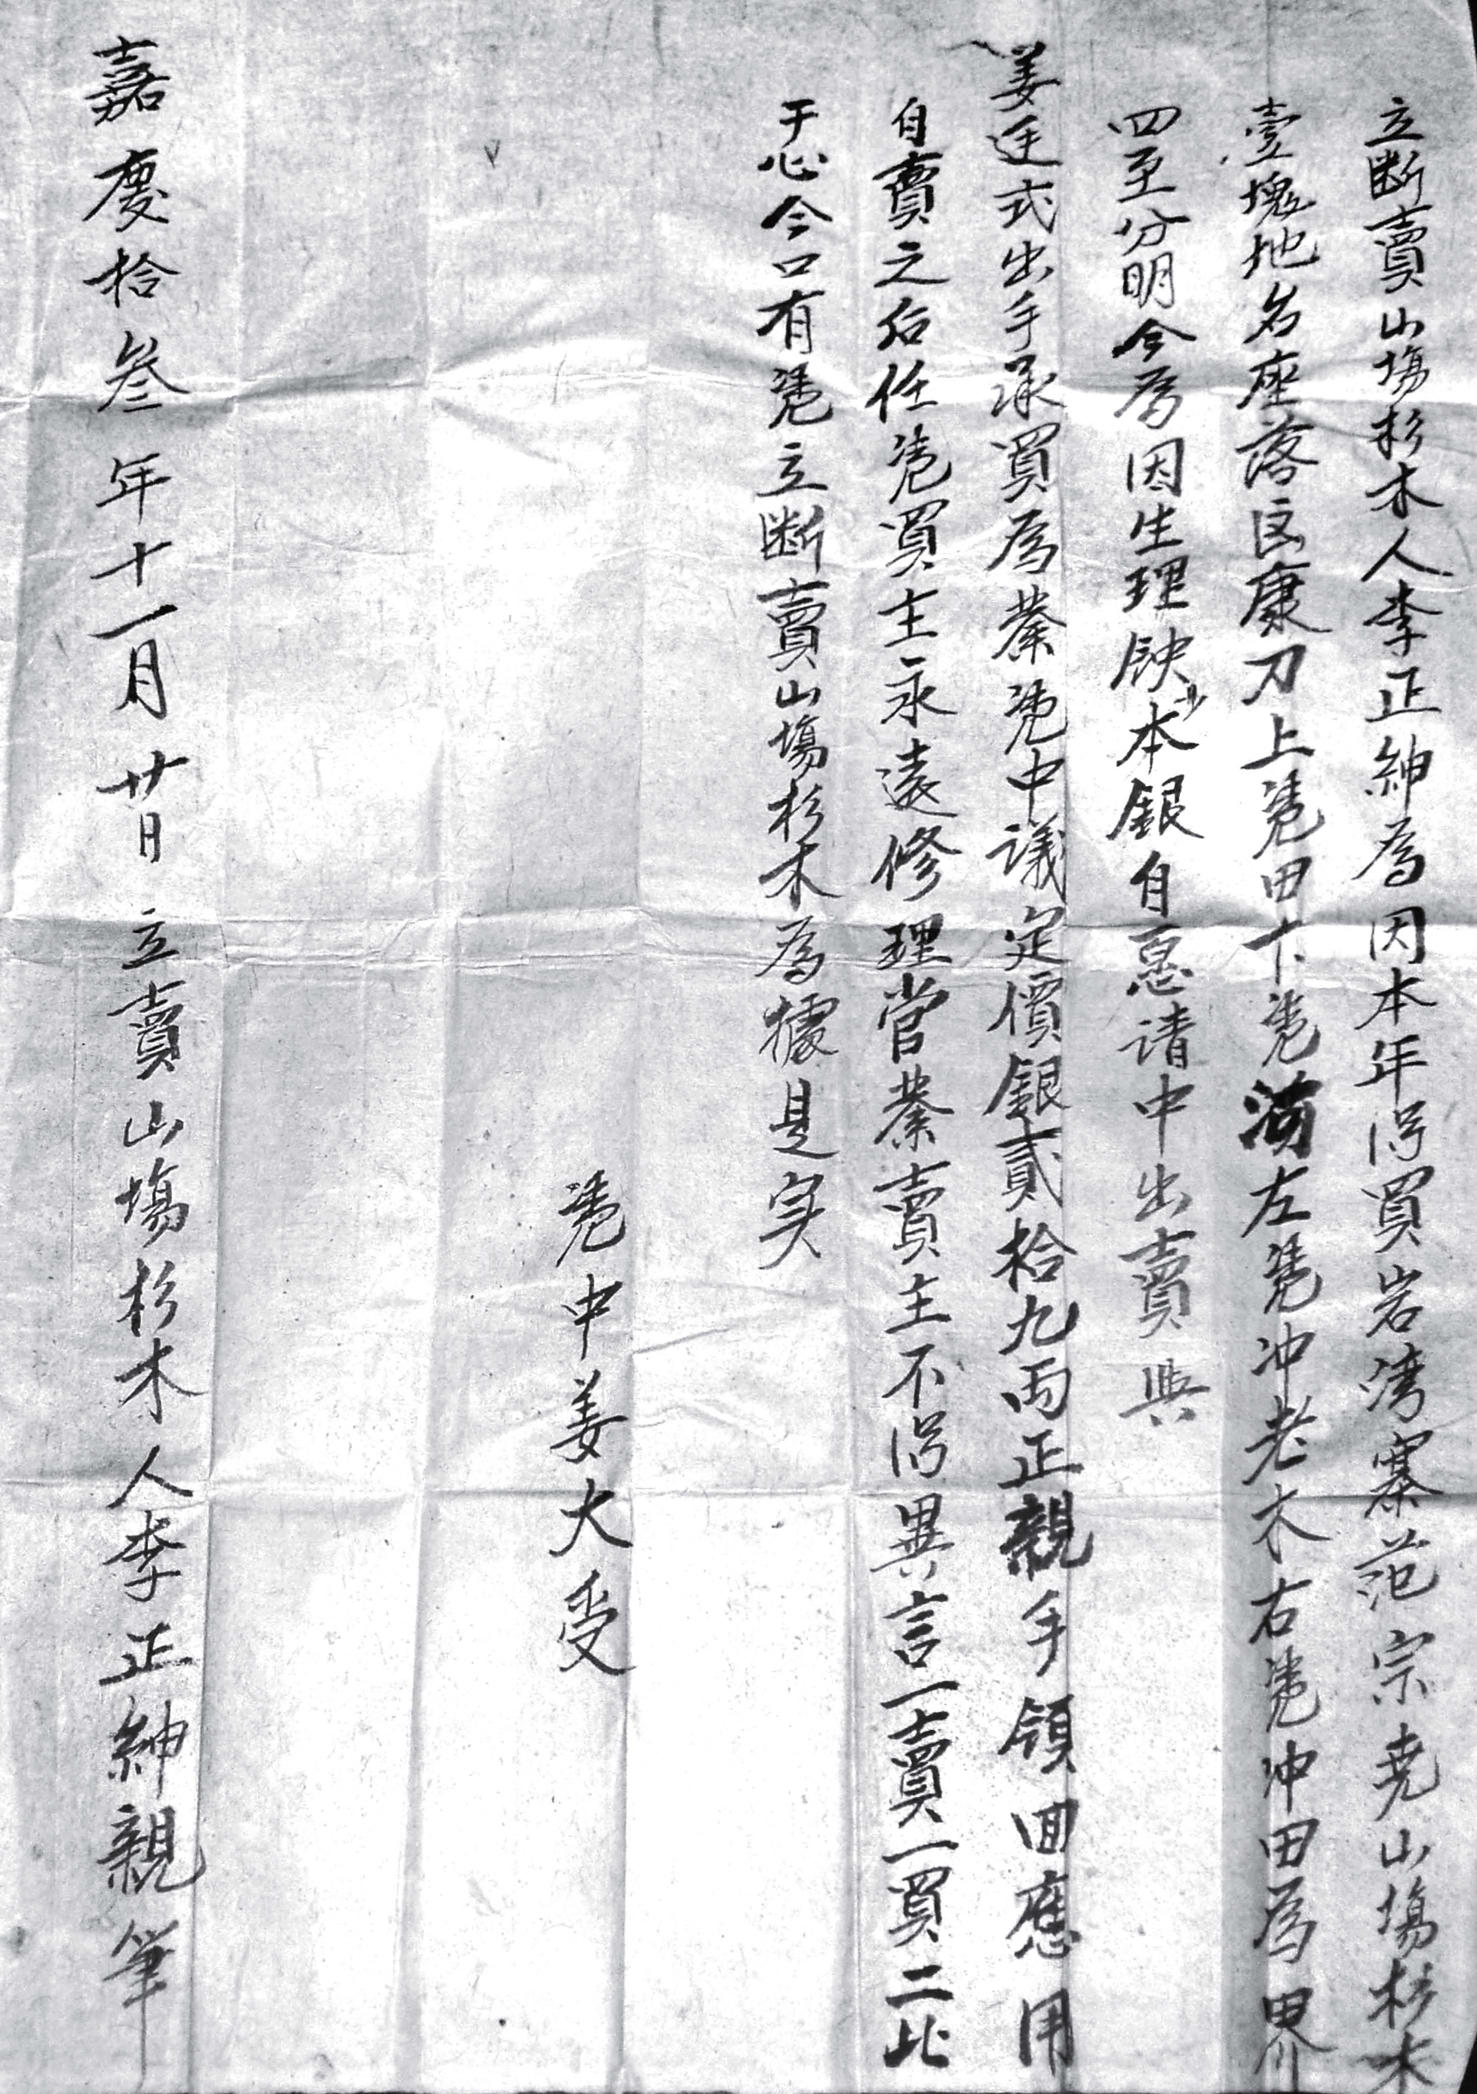 立断賣山塲杉木人李正紳為因本年淂買岩湾寨范宗尭山塲杉木
壹塊地名座落啚康刀上凴田下凴溝左凴冲老木右凴冲田為界
四至分明今為因生理缺少本銀自愿请中出賣與
姜廷式出手承買為業凴中議定價銀貳拾九両正親手領回應用
自賣之后任凴買主永遠修理管業賣主不淂異言一賣一買二比
于心今口有凴立断賣山塲杉木為據是实
凴中姜大受
嘉慶拾叁年十一月廿日立賣山塲杉木人李正紳親筆